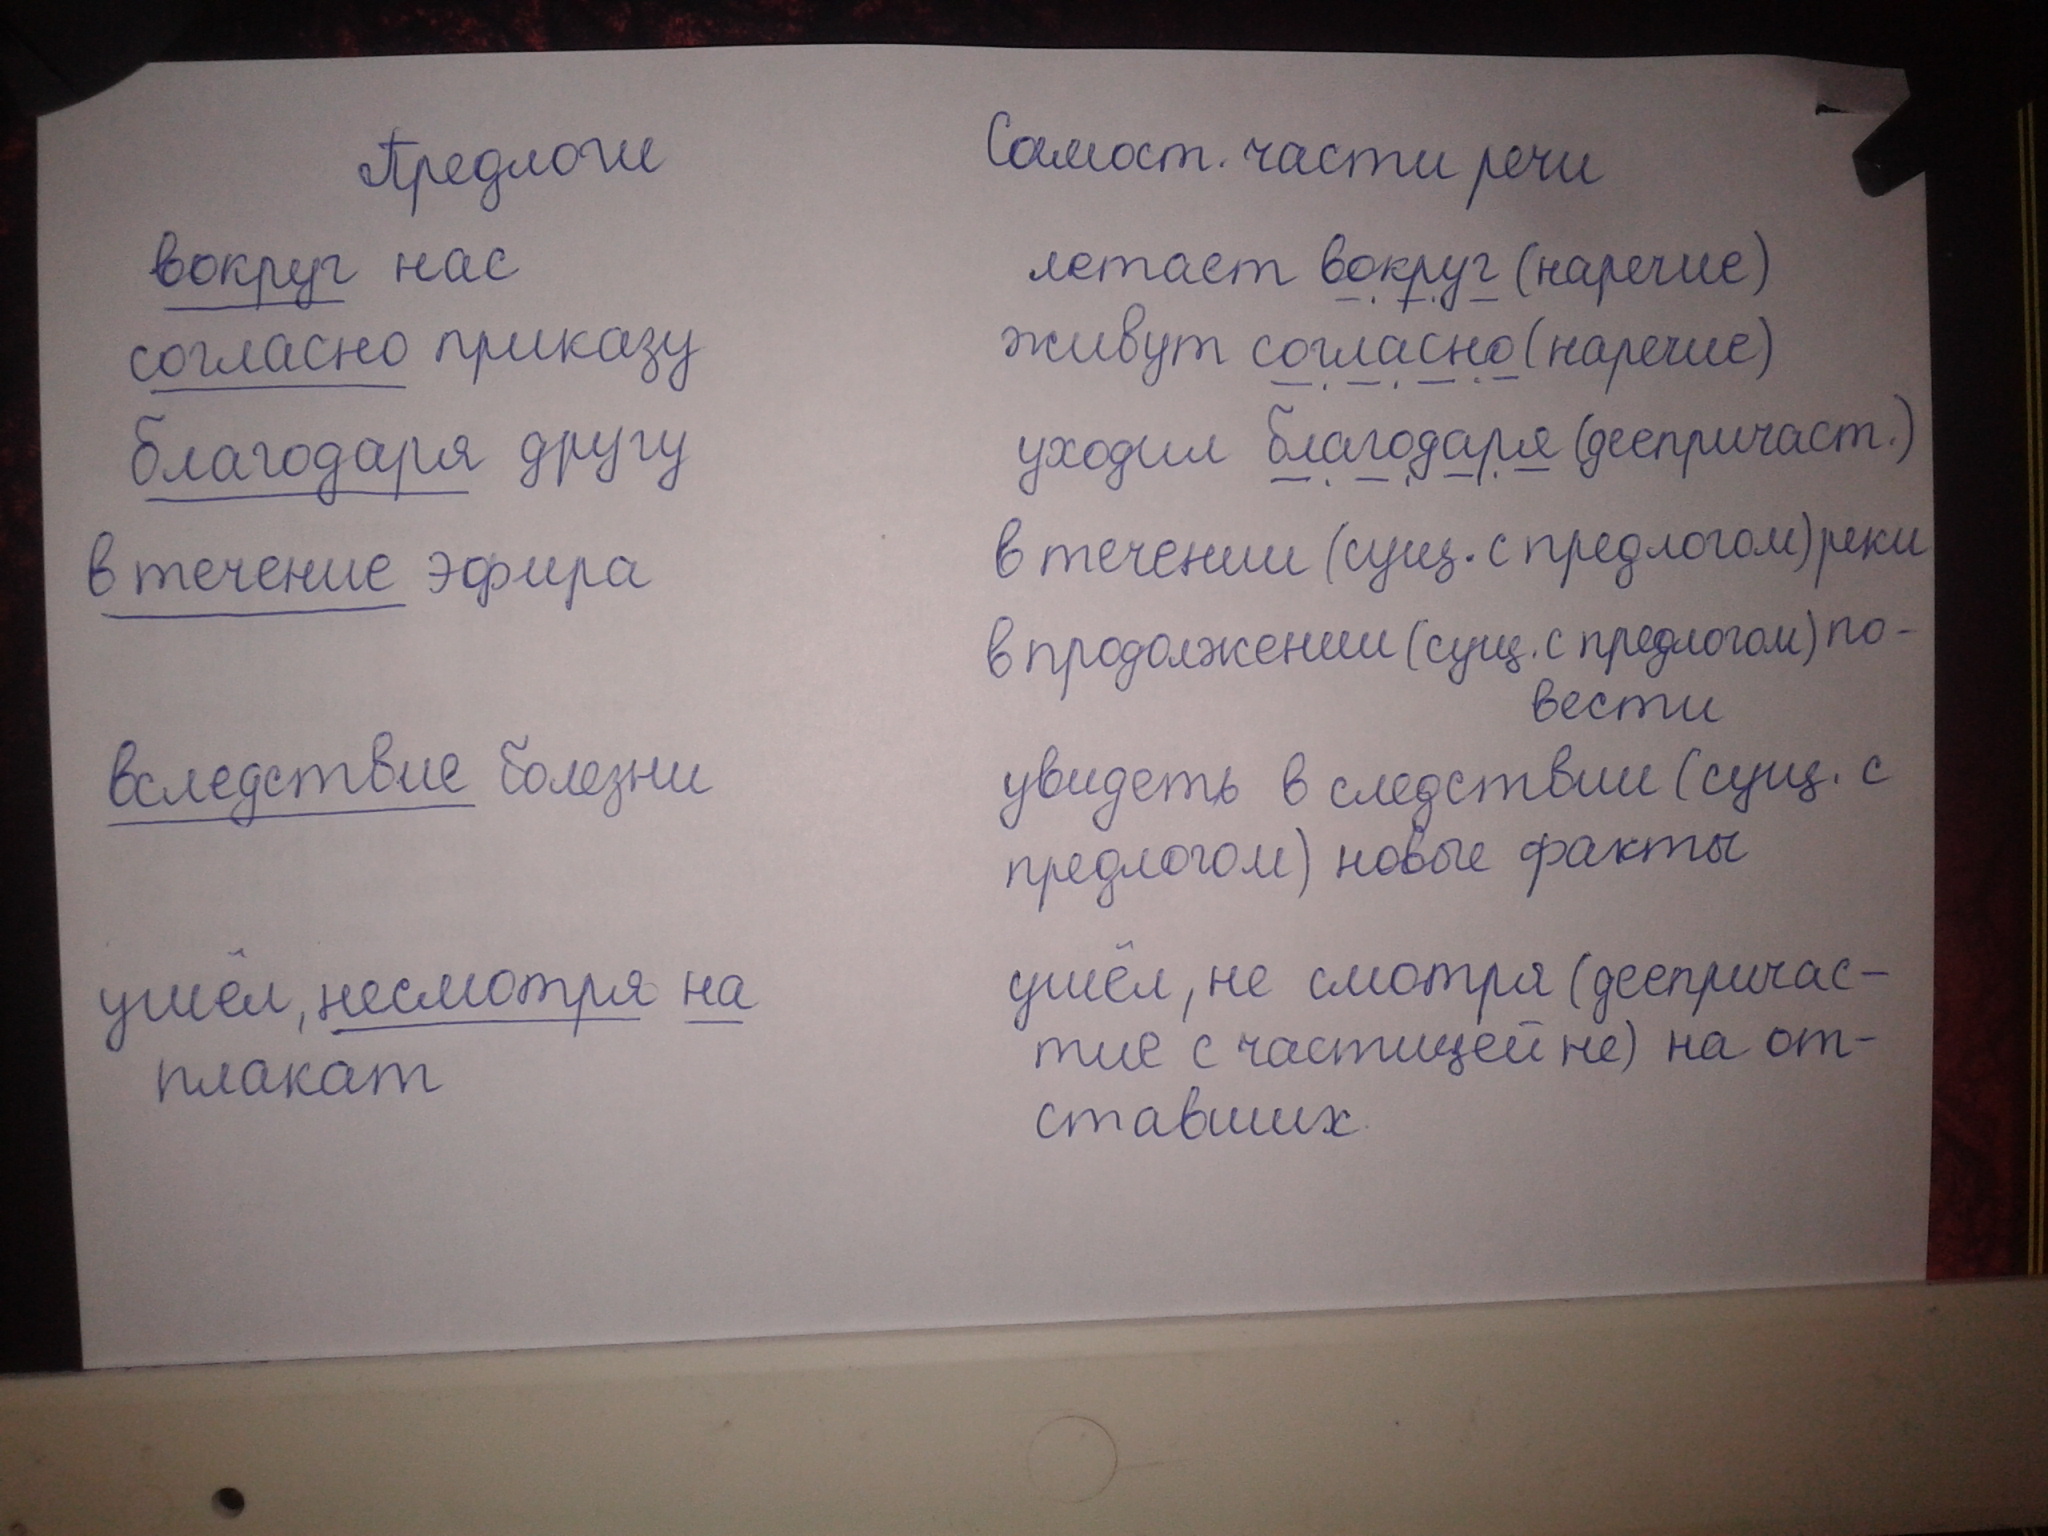 Предлоги Самост. части речи
вокруг нас летает вокруг (наречие)
согласно приказу живут согласно (наречие)
благодаря другу уходил благодаря (деепричаст.)
в течение эфира в течении (сущ. с предлогом) реки
в продолжении (сущ. с предлогом) по-
вести
вследствие болезни увидеть в следствии (сущ. с
предлогом) новые факты
ушёл, несмотря на ушёл, не смотря (деепричас-
плакат тие с частицей не) на от-
ставших